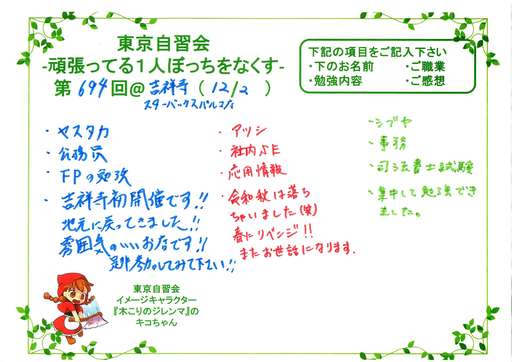 東京自習会
-頑張ってる1人ぼっちをなくす-
第 694 回@ 吉祥寺 ( 12/2 )
スターバックスパルコ
下記の項目をご記入下さい
・下のお名前 ・ご職業
・勉強内容 ・ご感想
・ヤスタカ
・公務員
・FPの勉強
・吉祥寺初開催です!!
地元に戻ってきました!!
雰囲気のいいお店です!!
是非参加してみて下さい!!
・アツシ
・社内SE
・応用情報
・令和秋は落ち
ちゃいました(笑)
春にリベンジ!!
またお世話になります.
・シブヤ
・事務
・司法書士試験
・集中して勉強でき
ました。
東京自習会
イメージキャラクター
『木こりのジレンマ』の
キコちゃん